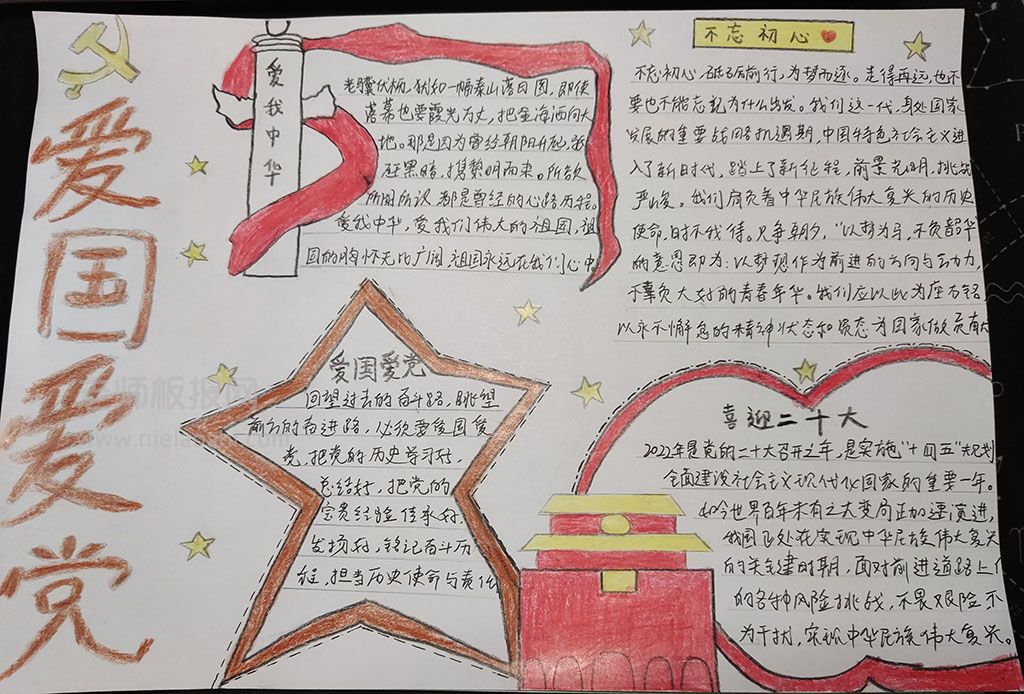 爱国爱党
爱我中华
老骥伏枥,犹如一幅泰山落日图,即使
落幕也要霞光万丈,把金海洒向大
地。那是因为曾经朝阳升起,
在黑暗,携黎明而来。所欲
所闻所议都是曾经的心路历程。
爱我中华,爱我们伟大的祖国,祖
国的胸怀无比广阔,祖国永远在我们心中
不忘初心
不忘初心,砥砺前行,为梦而逐。走得再远,也不
要也不能忘记为什么出发。我们这一代,身处国家
发展的重要战略机遇期,中国特色社会主义进
入了新时代,踏上了新征程,前景光明,挑战
严峻。我们肩负着中华民族伟大复兴的历史
使命,时不我待。只争朝夕,“以梦为马,不负韶华”
的意思即为:以梦想作为前进的方向与动力,
不辜负大好的青春年华。我们应以此为座右铭
以永不懈怠的精神状态和姿态为国家做贡献
爱国爱党
回望过去的奋斗路,眺望
前方的奋进路,必须要爱国爱
党,把党的历史学习好,
总结好,把党的
宝贵经验传承好,
发扬好,铭记奋斗历
程,担当历史使命与责任
喜迎二十大
2022年是党的二十大召开之年,是实施“十四五”规划
全面建设社会主义现代化国家的重要一年。
如今世界百年未有之大变局正加速演进,
我国正处在实现中华民族伟大复兴
的关键时期,面对前进道路上
的各种风险挑战,不畏艰险不
为干扰,实现中华民族伟大复兴。
师板报网